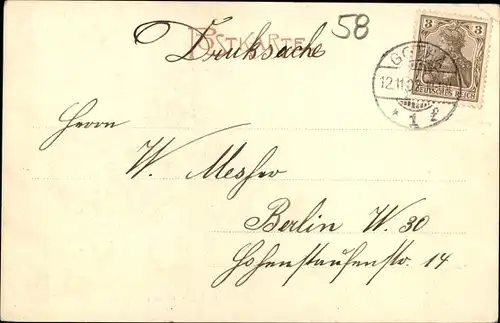 58
POSTKARTE
Drucksache
3 3
DEUTSCHES REICH
GOTHA
12.11.0
* 1 f
Herrn
W. Messer
Berlin W. 30
Hohenstaufenstr. 14